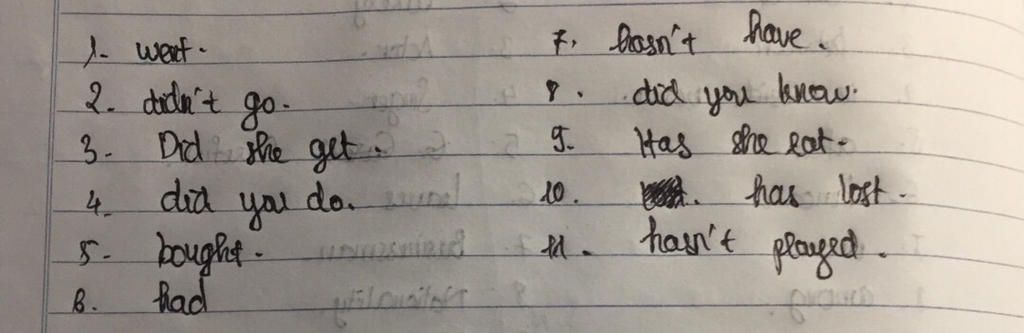 1. went.
2. didn't go.
3. Did she get.
4. did you do.
5. bought.
6. had
7. hasn't have.
8. did you know.
9. Has she eat.
10. has lost.
11. hasn't played.